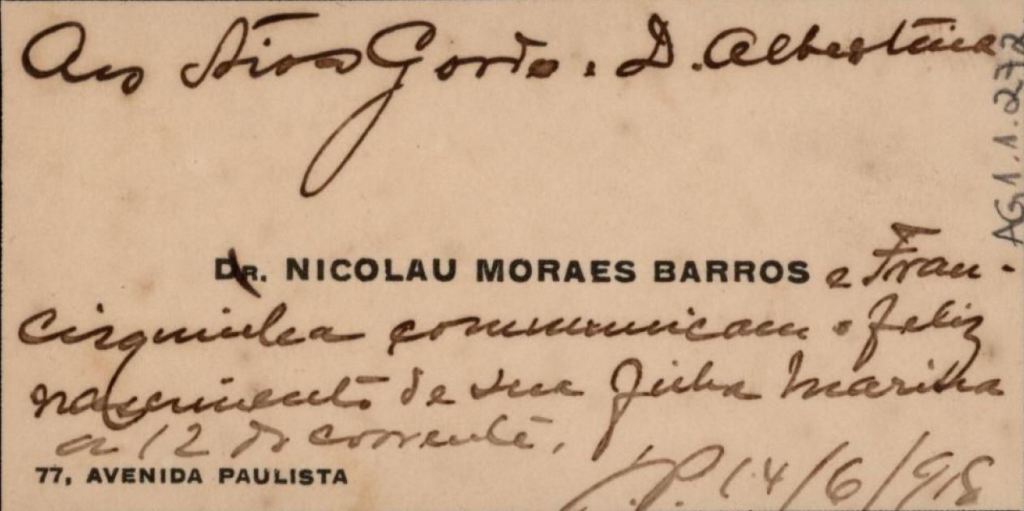 Aos Tios Gordo e D. Albertina
DR. NICOLAU MORAES BARROS e Fran-
cisquinha communicam o feliz
nascimento de sua filha Marina
a 12 do corrente.
77, AVENIDA PAULISTA
S.P. 14/6/918
AG.1.1.273